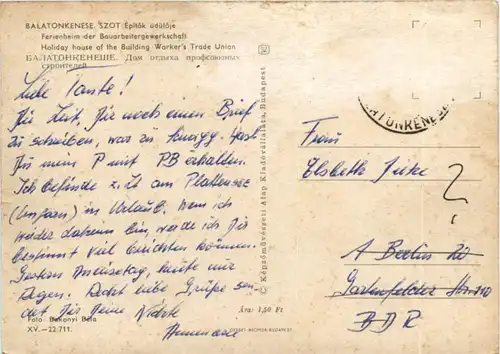 BALATONKENESE. SZOT Építők üdülője
Ferienheim der Bauarbeitergewerkschaft
Holiday house of the Building Worker's Trade Union
БАЛАТОНКЕНЕШЕ. Дом отдыха профсоюзных
строителей
Liebe Tante!
Die Zeit, Dir noch einen Brief
zu schreiben, war zu knapp. Hast
Du mein P mit PB erhalten.
Ich befinde z.Zt am Plattensee
(Ungarn) in Urlaub. Wenn ich
wieder daheim bin, werde ich Dir
bestimmt viel berichten können.
Gestern Anreisetag, heute nur
Regen. Recht liebe Grüße sen-
det Dir Deine Nichte
Annemarie
Foto: Bakonyi Béla
XV.—22.711.
© Képzőművészeti Alap Kiadóvállalata, Budapest
Ára: 1,50 Ft
OFFSET-NYOMDA BUDAPEST
BALATONKENESE
Frau
Elsbeth Ju
1 Berlin 20
Gartenfelder Str. 110
BDR